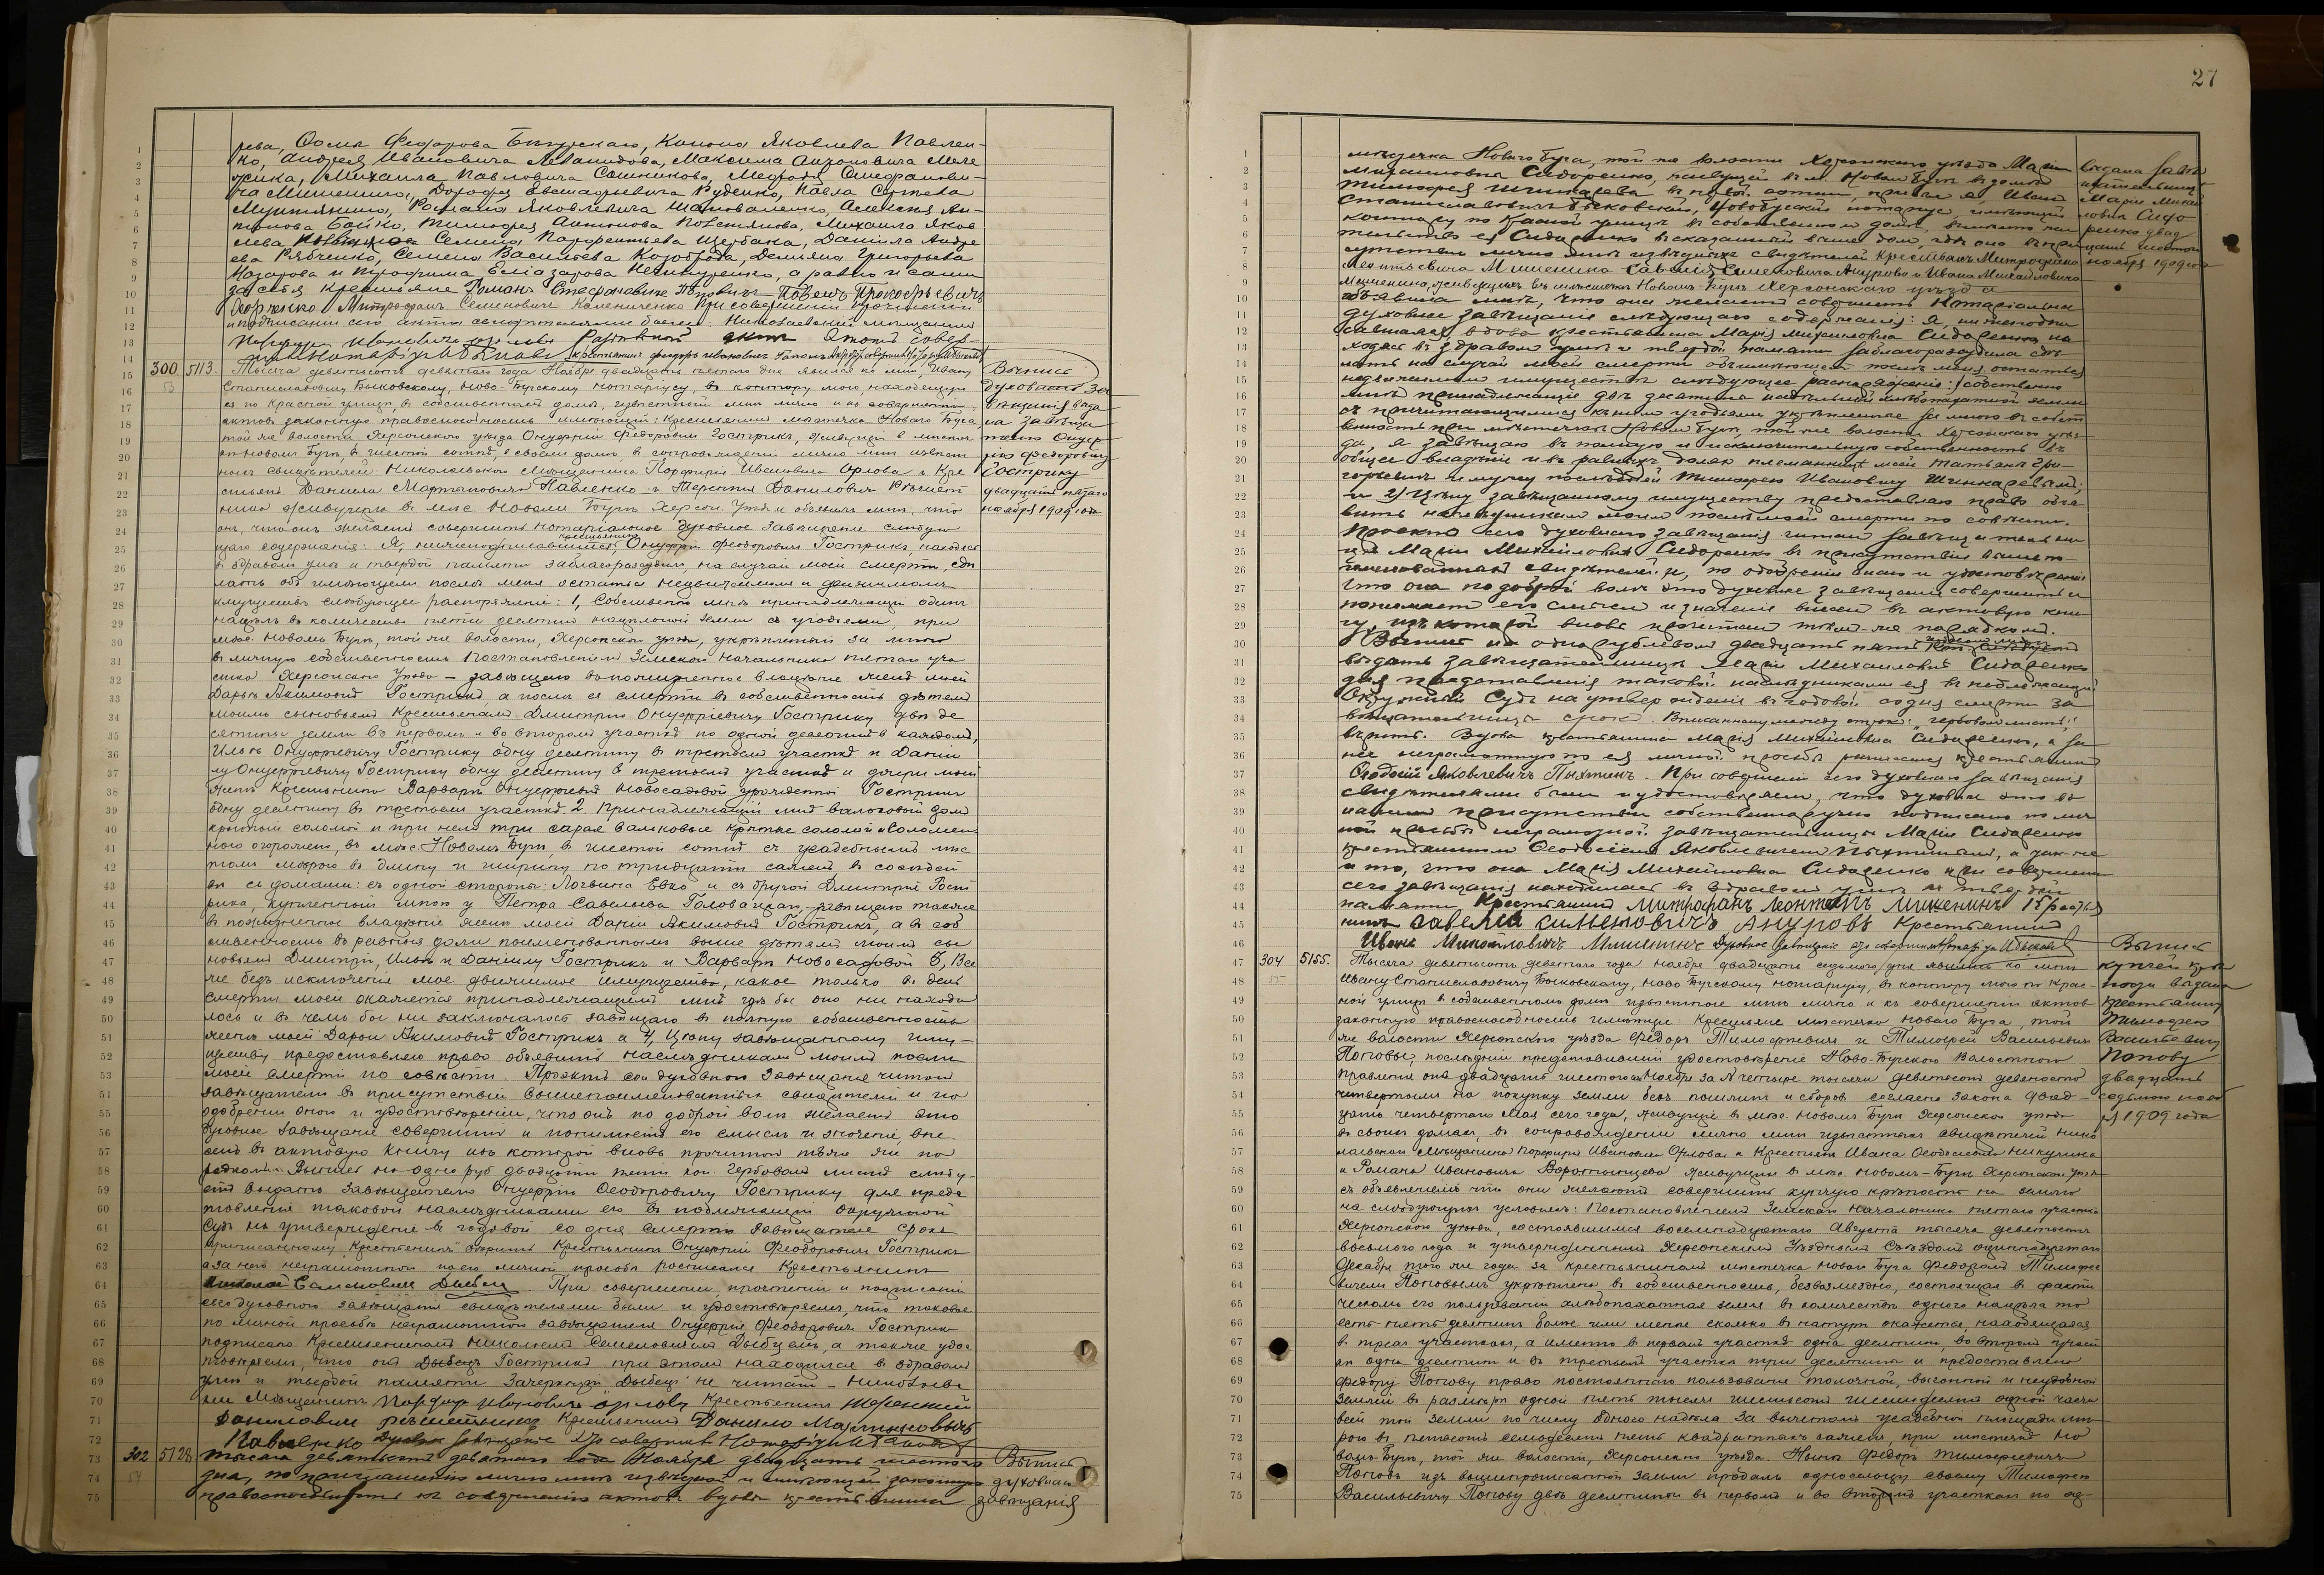 27
рева, Фомы Федорова Бондурскаго, Конона Яковлева Павлен-
ко, Андрея Ивановича Леванидова, Максима Антоновича Меле
жика, Михаила Павловича Сошникова,
ча Мишенина, Дорофея Евстафьевича Руденко, Павла Сергеева
Романа Яковлевича Шаповаленко, Алексея Ан-
тонова Бойко, Тимофея Антонова Михаила Яков
лева Семена Парфентьева Щербака, Даниила Андре
ева Рябченко, Семена Васильева Козоброда, Демьяна Григорьева
Назарова и Трофима Елизарова а равно и сами
за себя крестьяне Романъ Стефановичъ Поповичъ Павелъ Прокофьевичъ
Митрофанъ Семеновичъ Калениченко При совершении прочтении
и подписании сего акта свидетелями были: Николаевский мещанинъ
Порфирий Ивановичъ Орловъ актъ этотъ совер-
Нотаріусъ И. Быковский крестьянинъ Федоръ Ивановичъ
300 5113. Тысяча девятьсотъ девятаго года Ноября двадцать пятаго дня явился ко мне, Ивану
Станиславовичу Быковскому, Ново-Бугскому нотаріусу, въ контору мою, находящую
ся по Красной улице, въ собственномъ доме, известный мне лично и къ совершенію
актовъ законную правоспособность имеющій: Крестьянинъ местечка Новаго Буга
той же волости Херсонскаго уезда Онуфрій Федоровичъ Гострикъ, живущій въ местеч
ке Новомъ Буге, въ шестой сотне, въ своемъ доме, въ сопровожденіи лично мне извест
ныхъ свидетелей: Николаевскаго мещанина Порфирія Ивановича Орлова и Кре
стьянъ Даниила Мартыновича Павленко и Терентія Даниловича Решет
ника живущихъ въ мес. Новомъ Буге Херсон. Уезда и объявилъ мне, что
онъ, желаетъ совершить нотаріальное духовное завещаніе следую
щаго содержанія: Я, нижеподписавшійся, крестьянинъ Онуфрій Феодоровичъ Гострикъ, находясь
въ здравомъ уме и твердой памяти заблагоразсудилъ, на случай моей смерти, сде
лать объ имеющемъ после меня остаться недвижимомъ и движимомъ
имуществе следующее распоряженіе: 1, Собственно мне принадлежащій одинъ
наделъ въ количестве пяти десятинъ надельной земли съ угодьями, при
мес. Новомъ Буге, той же волости, Херсонскаго уезда, укрепленный за мною
въ личную собственность Постановленіемъ Земскаго Начальника пятаго уча
стка Херсонскаго Уезда – завещаю въ пожизненное владеніе жене моей
Дарье Акимовне Гострикъ, а после ея смерти въ собственность детямъ
моимъ сыновьямъ Крестьянамъ Дмитрію Онуфріевичу Гострику две де
сятины земли въ первомъ и во второмъ участке по одной десятине въ каждомъ,
Илье Онуфріевичу Гострику одну десятину въ третьемъ участке и Дании
лу Онуфріевичу Гострику одну десятину въ третьемъ участке и дочери моей
жене Крестьянина Варваре Онуфріевне Новосадовой урожденной Гострикъ
одну десятину въ третьемъ участке. 2. Принадлежащій мне вальковый домъ
крытый соломой и при немъ три сарая вальковые крытые соломой
огорожено, въ мес. Новомъ Буге, въ шестой сотне съ усадебнымъ мес
томъ мерою въ длину и ширину по тридцати саженъ въ соседст
ве съ домами: съ одной стороны: Логвина Евко и съ другой Дмитрія Гост
рика, купленный мною у Петра Савельева Головацкаго, завещаю также
въ пожизненное владеніе жене моей Даріи Акимовне Гострикъ, а въ соб
ственность въ равныя доли поименованнымъ выше детямъ моимъ сы
новьямъ Дмитрію, Илье и Даниилу Гострикъ и Варваре Новосадовой 3, Все
же безъ исключенія мое движимое имущество, какое только въ день
смерти моей окажется принадлежащимъ мне где бы оно ни находи
лось и въ чемъ бы ни заключалось завещаю въ полную собственность
жене моей Дарье Акимовне Гострикъ и 4, Цену завещанному иму-
ществу предоставляю право объявить наследникамъ моимъ после
моей смерти по совести. Проэктъ сего духовнаго завещанія читанъ
завещателемъ въ присутствіи вышепоименованныхъ свидетелей и по
одобреніи онаго и удостовереніи, что онъ по доброй воле желаетъ это
духовное завещаніе совершить и понимаетъ его смыслъ и значеніе, вне
сенъ въ актовую книгу изъ которой вновь прочитанъ темъ же по
рядкомъ. Выпись на одно руб двадцати пяти коп. гербовомъ листе следу-
етъ выдать завещателю Онуфрію Феодоровичу Гострику для предс
тавленія таковой наследниками его въ подлежащій Окружной
Судъ на утвержденіе въ годовой со дня смерти завещателя срокъ
приписанному "крестьянинъ" верить Крестьянинъ Онуфрій Феодоровичъ Гострикъ
а за него неграмотнаго по его личной просьбе росписался Крестьянинъ
Николай Семеновичъ Дыбецъ При совершеніи, прочтеніи и подписаніи
сего духовнаго завещанія свидетелями были и удостоверяемъ, что таковое
по личной просьбе неграмотнаго завещателя Онуфрія Феодоровича Гострика
подписано Крестьяниномъ Николаемъ Семеновичемъ Дыбцемъ, а также удос
товеряемъ, что онъ Гострикъ при этомъ находился въ здравомъ
уме и твердой памяти Зачеркнутое "Дыбецъ" не читать – Николаевс
кій Мещанинъ Порфирій Ивановичъ Орловъ Крестьянинъ Терентий
Даниловичъ Решетникъ Крестьянинъ Данило Мартыновичъ
Павленко Духовное завещаніе это совершилъ Нотаріусъ И. Быковский
302 5128. Тысяча девятьсотъ девятаго года Ноября двадцать шестого
дня, по приглашенію лично мне известной и имеющей законную
правоспособность къ совершенію актовъ вдовы крестьянина
Выпись
духовнаго за
вещанія выда
на завещи
телю Онуф
рію Федоровичу
Гострику
двадцать пятаго
ноября 1909 года
Выпись
духовнаго
завещанія
местечка Новаго Буга, той же волости Херсонскаго уезда Маріи
Михайловны Сидоренко, живущей въ м. Новомъ Буге въ доме
Тимофея Шинкарева въ сотни, прибылъ я, Иванъ
Станиславовичъ Быковскій, Новобугскій нотаріус, имеющій
контору по Красной улице въ собственномъ доме,
Сидоренко въ сказанный выше домъ, где она въ при
сутствіи лично мне известныхъ свидетелей Крестьянъ Митрофана
Леонтьевича Мишенина Савелія Семеновича Анурова и Ивана Михайловича
Мишенина, живущихъ въ местечке Новомъ-Буге Херсонскаго уезда
объявила мне, что она желаетъ совершить Нотаріальное
духовное завещаніе следующаго содержанія: Я, нижеподпи
савшаяся вдова крестьянина Марія Михайловна Сидоренко, на
ходясь въ здравомъ уме и твердой памяти заблагоразсудила сде
лать на случай моей смерти объ имеющемъ после меня остаться
недвижимомъ имуществе следующее распоряженіе: 1) собственно
мне принадлежащіе две десятины надельной хлебопахатной земли
съ причитающимися къ нимъ угодьями укрепленные за мною въ собст
венность при местечке Новомъ Буге, той же волости Херсонскаго уез-
да, я завещаю въ полную и исключительную собственность въ
общее владеніе и въ равныхъ доляхъ племяннице моей Татьяне Гри-
горьевне и мужу последней Тимофею Ивановичу Шинкаревымъ;
и 2) Цену завещанному имуществу предоставляю право объя
вить наследникамъ моимъ после моей смерти по совести.
Проектъ сего духовнаго завещанія читанъ завещательни
це Маріи Михайловне Сидоренко въ присутствіи вышепо-
именованныхъ свидетелей и, по одобреніи онаго и удостовереніи
что она по доброй воле это духовное завещаніе совершить и
понимаетъ его смыслъ и значеніе внесенъ въ актовую кни
гу, изъ которой вновь прочитанъ темъ-же порядкомъ.
Выпись на одно рублевомъ двадцать пяти коп. следуетъ
выдать завещательнице Маріи Михайловне Сидоренко
для представленія таковой наследниками ея въ подлежащій
Окружный Судъ на утвержденіе въ годовой со дня смерти за
вещательницы срокъ. Вписанному между строкъ: "гербовомъ листе"
верить. Вдова крестьянина Марія Михайловна Сидоренко, а за
нее неграмотную по ея личной просьбе росписался крестьянинъ
Феодосій Яковлевичъ Пыхтинъ. При совершеніи сего духовнаго завещанія
свидетелями были и удостоверяемъ, что духовное это въ
нашемъ присутствіи собственноручно подписано по лич
ной просьбе неграмотной завещательницы Маріи Сидоренко
крестьяниномъ Феодосіемъ Яковлевичемъ Пыхтинымъ, а так-же
и то, что она Марія Михайловна Сидоренко при совершеніи
сего завещанія находилась въ здравомъ уме и твердой
памяти. Крестьянинъ Митрофанъ Леонтьевъ Мишенинъ Крестья
нинъ Савелій Сименовичъ Ануровъ Крестьянинъ
Иванъ Михайловичъ Мишенинъ Духовное завещаніе это совершилъ Нотаріусъ И. Быковский
304 5155. Тысяча девятьсотъ девятаго года ноября двадцать седьмого дня явились ко мне
Ивану Станиславовичу Быковскому, Ново-Бугскому нотаріусу, въ контору мою по Крас-
ной улице въ собственномъ доме известные мне лично и къ совершенію актовъ
законную правоспособность имеющіе: Крестьяне местечка Новаго Буга, той
же волости Херсонскаго уезда Федоръ Тимофеевичъ и Тимофей Васильевичъ
Поповы, последній представившій удостовереніе Ново-Бугскаго Волостного
Правленія отъ двадцать шестого Ноября за № четыре тысячи девятьсотъ девяносто
четвертымъ на покупку земли безъ пошлинъ и сборовъ согласно закона двад-
цать четвертаго Мая сего года, живущіе въ мес. Новомъ Буге Херсонскаго уезда
въ своихъ домахъ, въ сопровожденіи лично мне известныхъ свидетелей Нико
лаевскаго Мещанина Порфирія Ивановича Орлова и Крестьянъ Ивана Феодосіевича Никулина
и Романа Ивановича Воротынцева живущихъ въ мес. Новомъ-Буге Херсонскаго уезда
съ объявленіемъ что они желаютъ совершить купчую крепость на землю
на следующихъ условіяхъ: Постановленіемъ Земскаго Начальника пятаго участка
Херсонскаго уезда, состоявшимся восемнадцатаго Августа тысяча девятьсотъ
восьмого года и утвержденнымъ Херсонскимъ Уезднымъ Съездомъ одиннадцатаго
Декабря того же года за крестьяниномъ местечка Новаго Буга Федоромъ Тимофее
вичемъ Поповымъ укреплена въ собственность, безвозмездно, состоящая въ факти
ческомъ его пользованіи хлебопахатная земля въ количестве одного надела то
есть пять десятинъ более или менее сколько въ натуре окажется, находящаяся
въ трехъ участкахъ, а именно въ первомъ участке одна десятина, во второмъ участ
ке одна десятина и въ третьемъ участке три десятины и предоставлено
Федору Попову право постояннаго пользованія толочной, выгонной и неудобной
землей въ размере одной пять тысячъ шестьсотъ шестьдесятъ одной части
всей той земли по числу одного надела за вычетомъ усадебной площади ме-
рою въ пятьсотъ семьдесятъ пять квадратныхъ саженъ, при местечке Но
вомъ-Буге, той же волости, Херсонскаго уезда. Ныне Федоръ Тимофеевичъ
Поповъ изъ вышепрописанной земли продалъ односельцу своему Тимофею
Васильевичу Попову две десятины въ первомъ и во второмъ участкахъ по од-
выдана завещ
ательнице
Маріи Михай
ловне Сидо
ренко двад
цать шестого
ноября 1909 года
Выпись
купчей кре
пости выдана
крестьянину
Тимофею
Васильевичу
Попову
двадцать
седьмого нояб
ря 1909 года